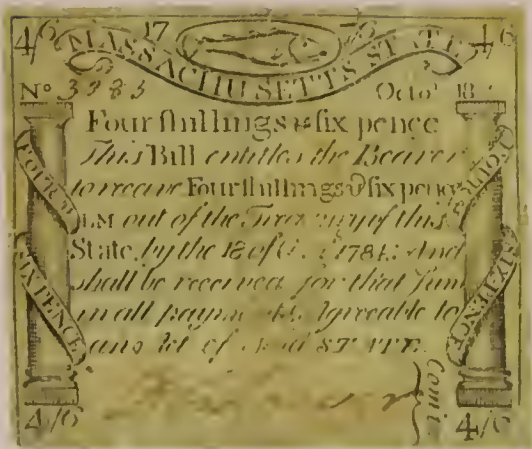 4/6 17 76 4/6
MASSACHUSETTS STATE
No 3385 Octo. 18
Four ſhillings & ſix pence
This Bill entitles the Bearer
to receive Four ſhillings & ſix pence
LM out of the Treasury of this
State, by the 18 of 1784: And
shall be received for that Sum
in all Agreeable to
of STATE.
FOUR
SIX PENCE
FOUR
SIX-PENCE
4/6 4/6